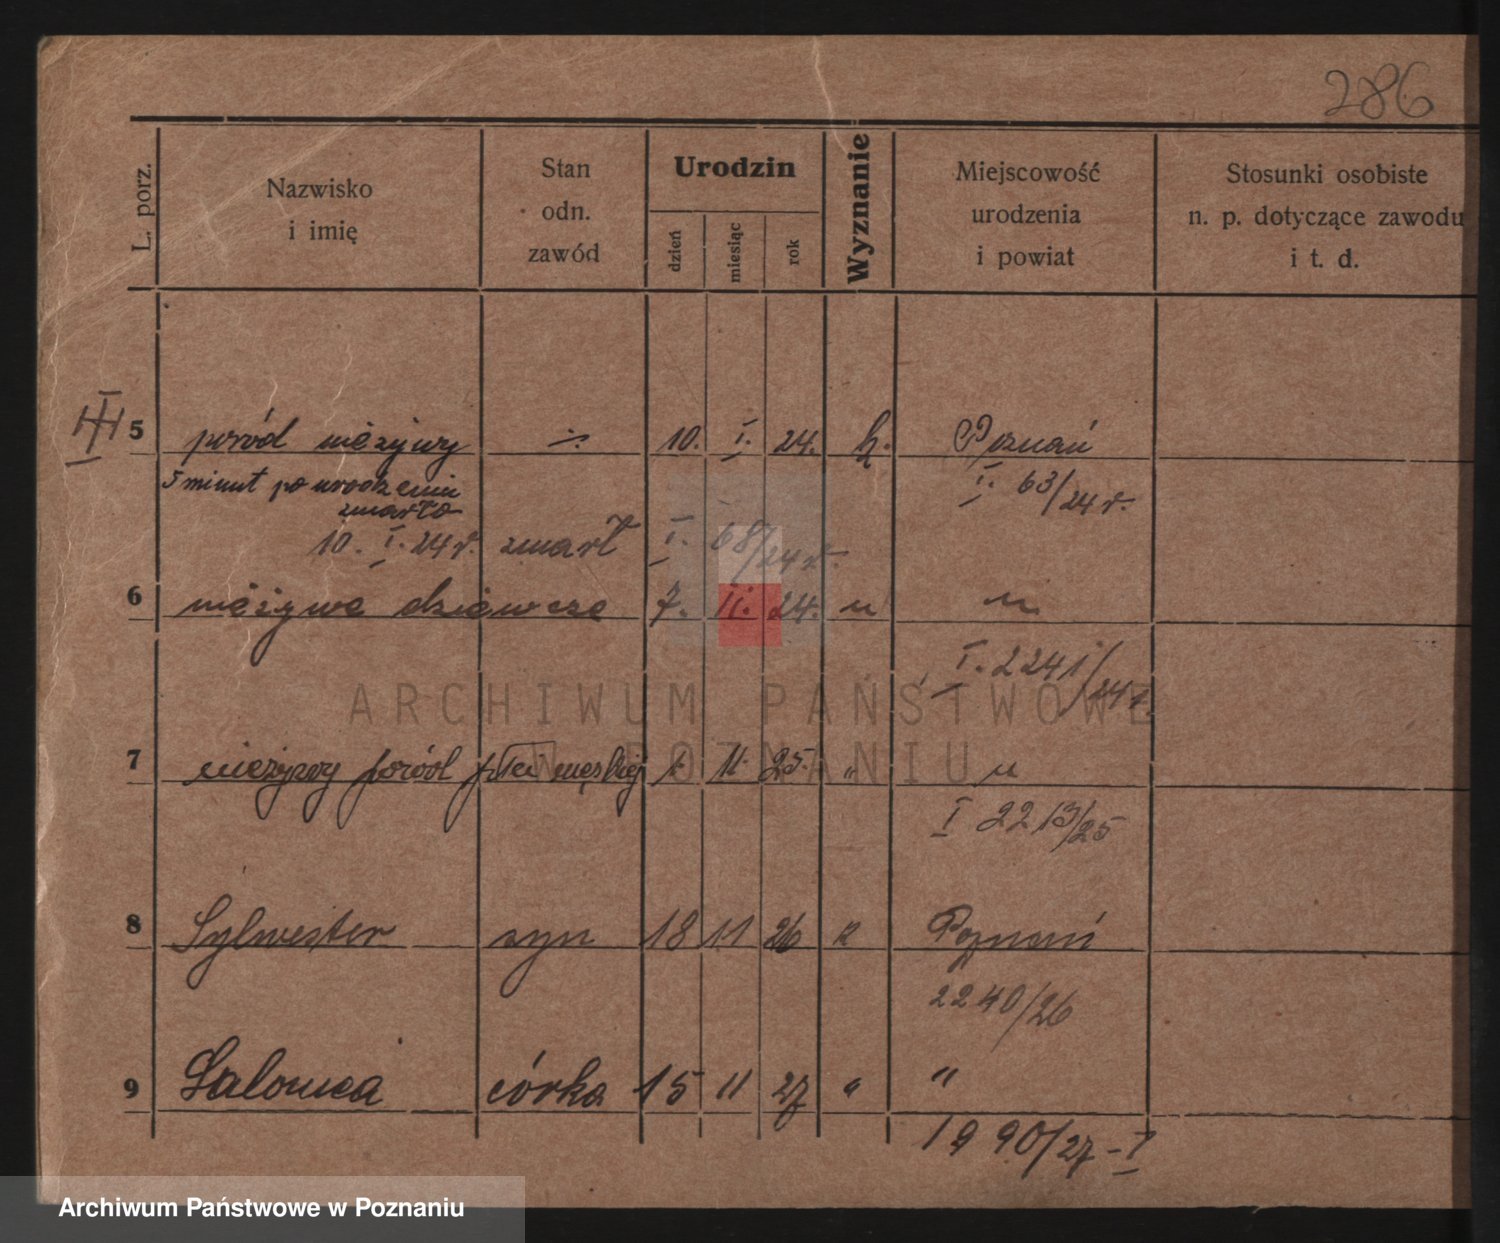 286
L. porz.
Nazwisko
i imię
Stan
odn.
zawód
Urodzin
dzień
miesiąc
rok
Wyznanie
Miejscowość
urodzenia
i powiat
Stosunki osobiste
n. p. dotyczące zawodu
i t. d.
5 poród nieżywy 10. I. 24. k. Poznań
5 minut po urodzeniu I. 63/24 r.
zmarło
10. I. 24 r. zmarł I. 68/24 r.
6 nieżywe dziewczę 7. 11. 24. " "
I. 2241/24 r.
7 nieżywy poród płci męskiej 1. 11. 25. " "
I 2213/25
8 Sylwester syn 18 11 26 k Poznań
2240/26
9 Salomea córka 15 11 27 " "
1990/27 - I
ARCHIWUM PAŃSTWOWE
W POZNANIU
Archiwum Państwowe w Poznaniu